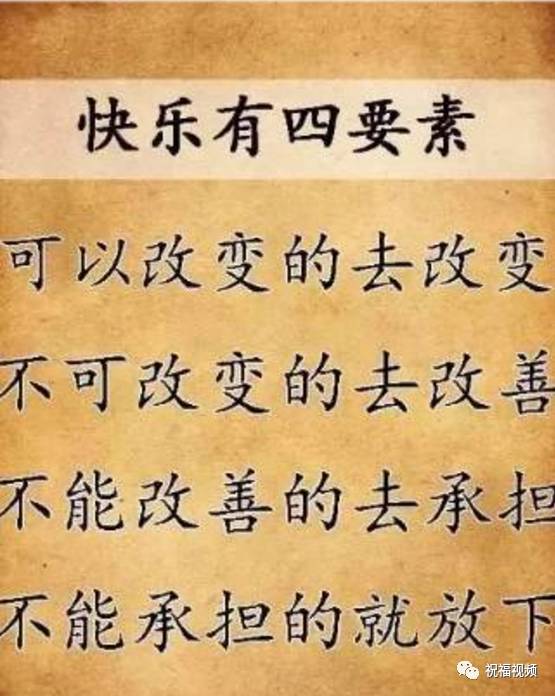 快乐有四要素
可以改变的去改变
不可改变的去改善
不能改善的去承担
不能承担的就放下
祝福视频